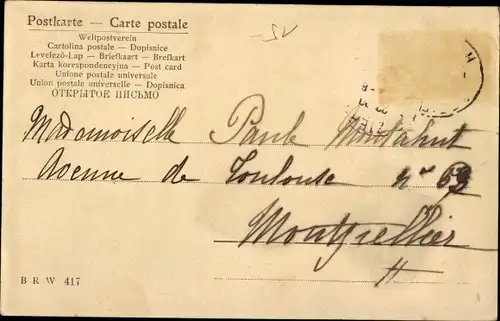 Postkarte — Carte postale
Weltpostverein
Cartolina postale — Dopisnice
Levelező-Lap — Briefkaart — Brefkort
Karta korespondencyjna — Post card
Unione postale universale
Union postale universelle — Dopisnica
ОТКРЫТОЕ ПИСЬМО
Mademoiselle Paule
Avenue de Toulouse nº 63
Montpellier
B R W 417